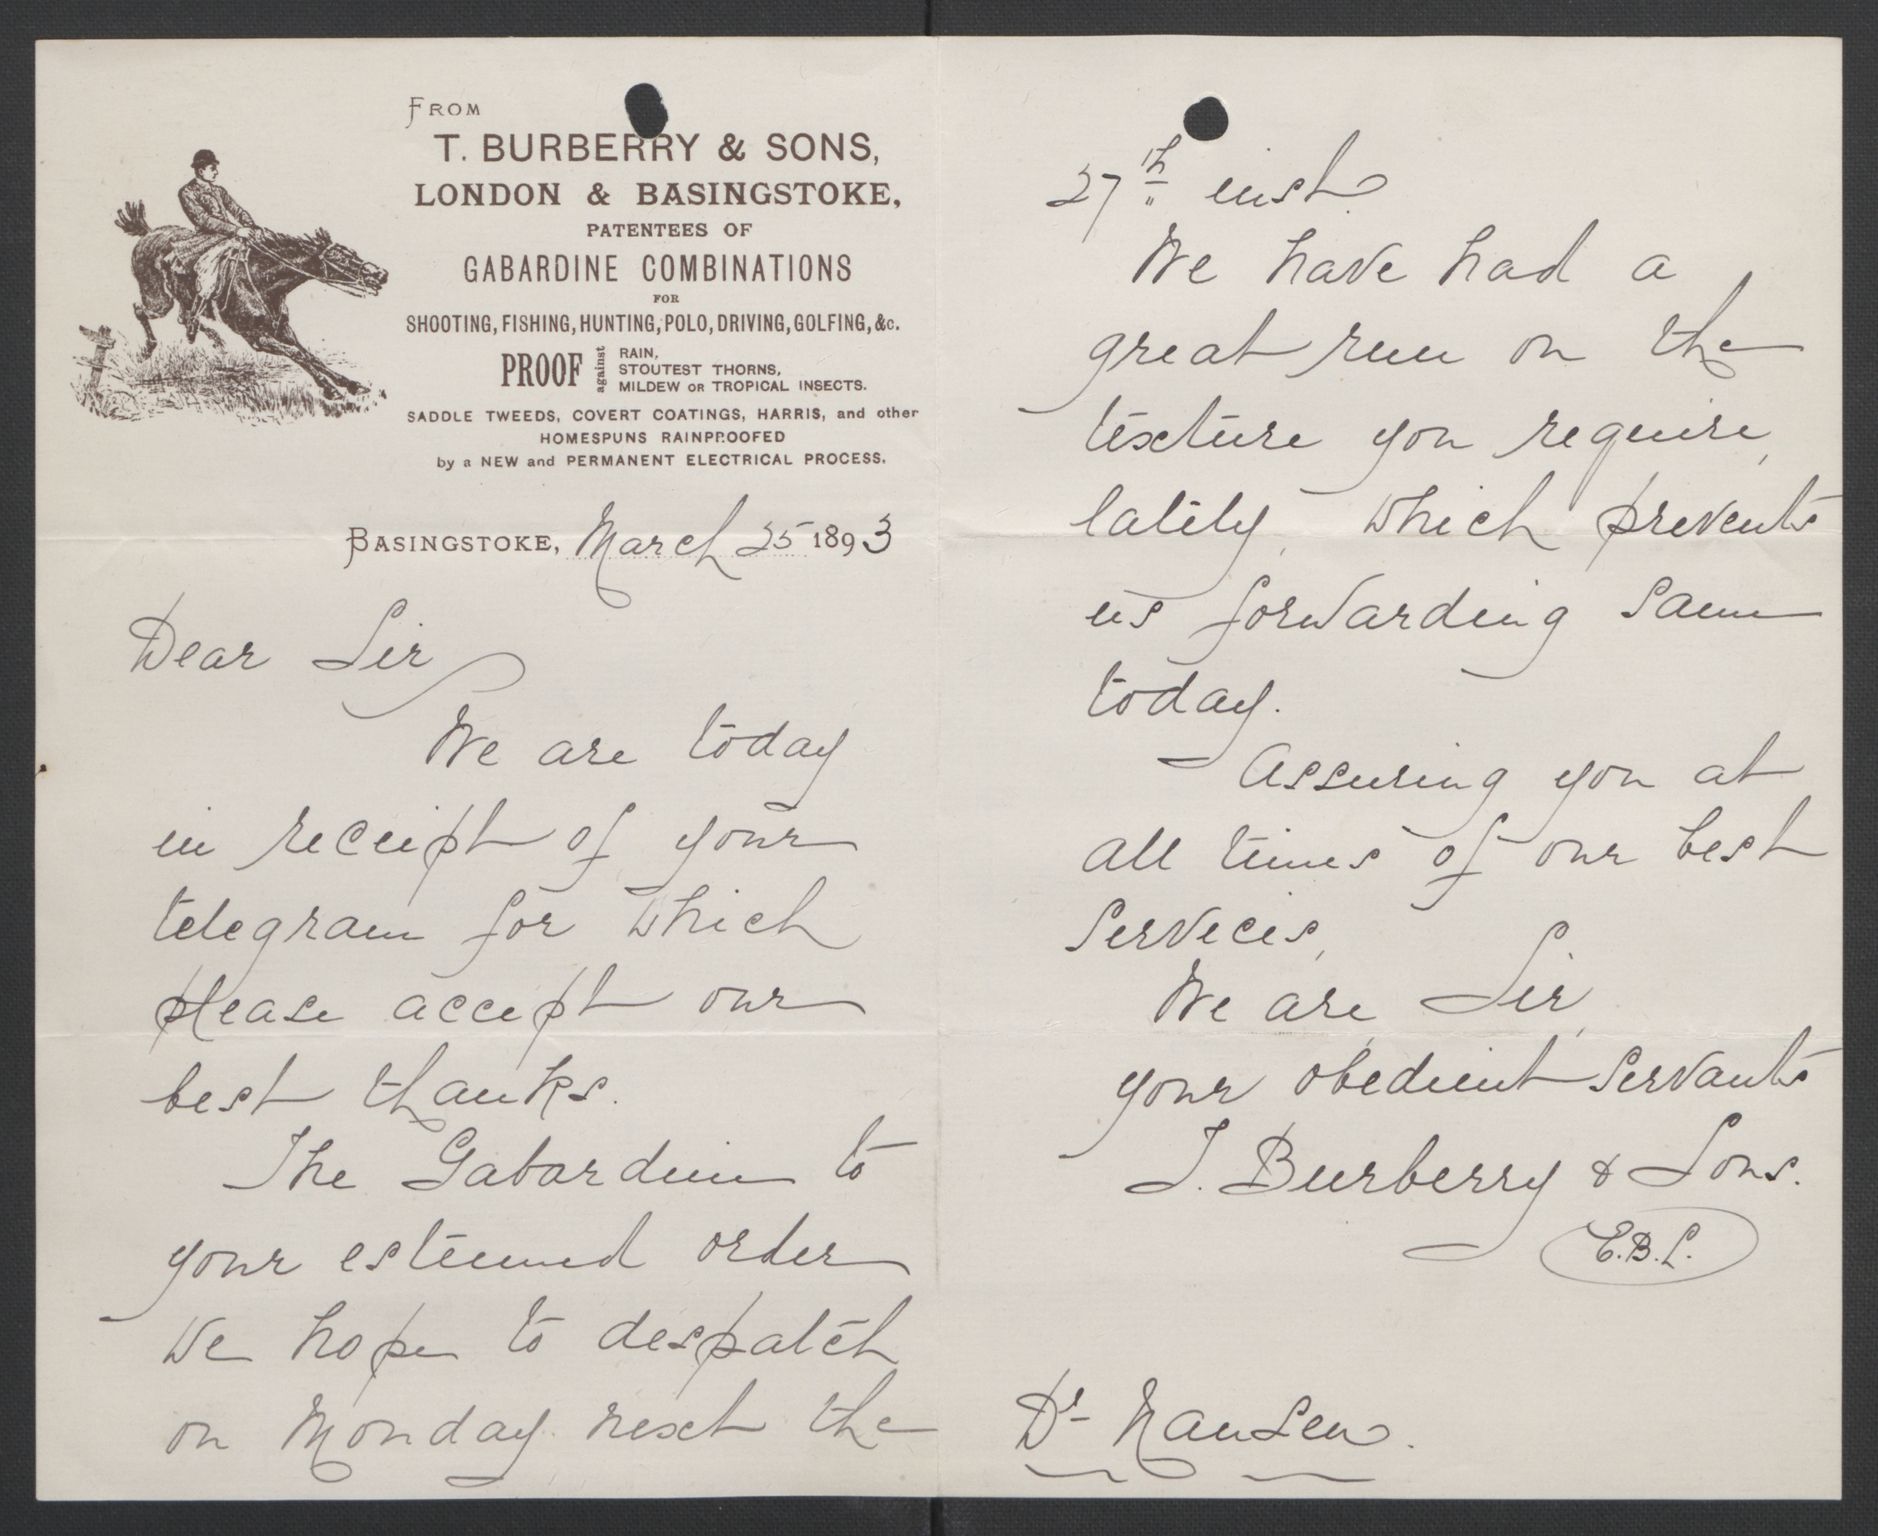 FROM
T. BURBERRY & SONS,
LONDON & BASINGSTOKE,
PATENTEES OF
GABARDINE COMBINATIONS
FOR
SHOOTING, FISHING, HUNTING, POLO, DRIVING, GOLFING, &c.
PROOF against RAIN,
STOUTEST THORNS,
MILDEW OR TROPICAL INSECTS.
SADDLE TWEEDS, COVERT COATINGS, HARRIS, and other
HOMESPUNS RAINPROOFED
by a NEW and PERMANENT ELECTRICAL PROCESS.
BASINGSTOKE, March 25 1893
Dear Sir
We are today
in receipt of your
telegram for which
please accept our
best thanks.
The Gabardine to
your esteemed order
we hope to despatch
on Monday next the
27th inst
We have had a
great run on the
texture you require,
lately, which prevents
us forwarding same
today.
Assuring you at
all times of our best
services,
We are Sir,
your obedient servants
T. Burberry & Sons.
E.B.L.
Dr Nansen.